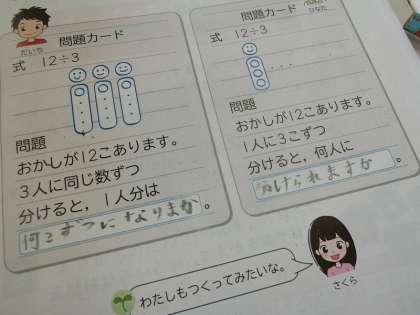 だいち
問題カード
式 12÷3
問題
おかしが12こあります。
3人に同じ数ずつ
分けると，1人分は
何こずつになりますか。
問題カード
ひなた
式 12÷3
問題
おかしが12こあります。
1人に3こずつ
分けると，何人に
分けられますか。
わたしもつくってみたいな。
さくら